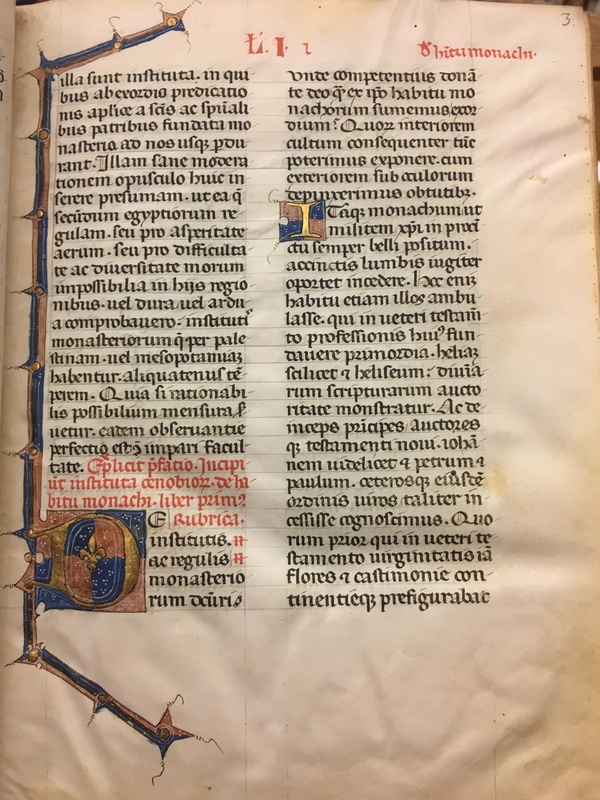 3.
L. I. 1
De hitu monachi.
illa sunt instituta. in qui
bus ab exordio predicatio
nis aplice a scis ac spuali
bus patribus fundata mo
nasteria ad nos usqꝫ pdu
rant. Illam sane modera
tionem opusculo huic in
serere presumam. ut ea q̄
secūdum egyptiorum re
gulam. seu pro asperitate
aerum. seu pro difficulta
te ac diversitate morum
impossibilia in hijs regio
nibus. vel dura vel ardu
a comprobavero. institutis
monasteriorum q̄ per pale
stinam. vel mesopotamiaꝫ
habentur. aliquatenus tē
perem. Quia si rationabi
lis possibilium mensura ẜ
vetur. eadem observantie
perfectio est in impari facul
tate. Explicit pfatio. Incipi
unt instituta cenobioꝝ. de ha
bitu monachi. liber primꝰ
DE Rubrica.
institutis. ⁊
ac regulis ⁊
monasterio
rum dcūri
Unde competentius donā
te deo q̄ ex ipō habitu mo
nachorum sumemus exor
dium? Quoꝝ interiorem
cultum consequenter tūc
poterimus exponere. cum
exteriorem sub oculorum
depinxerimus obtutibꝫ.
ITaqꝫ monachum ut
militem xp̄i in proci
ctu semper belli positum.
accinctis lumbis iugiter
oportet incedere. Hoc eniꝫ
habitu etiam illos ambu
lasse. qui in veteri testam̄
to professionis huiꝰ fun
davere primordia. heliaꝫ
scilicet ⁊ heliseum: divinā
rum scripturarum aucto
ritate monstratur. Ac de
inceps pricipes ⁊ auctores
qꝫ testamenti novi. iohā
nem videlicet ⁊ petrum ⁊
paulum. ceterosqꝫ eiusdē
ordinis viros taliter in
cessisse cognoscimus. Quo
rum prior qui in veteri te
stamento virginitatis iā
flores ⁊ castimonie con
tinentieqꝫ prefigurabat